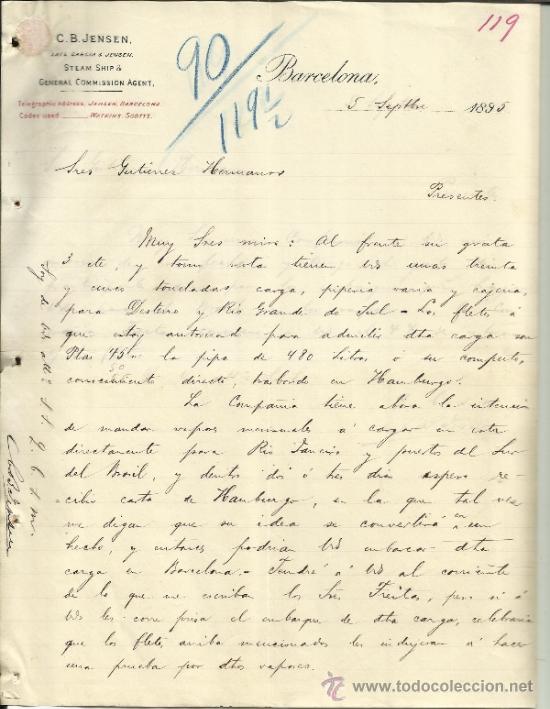 119
C. B. JENSEN,
LATE GARCIA & JENSEN,
STEAM SHIP &
GENERAL COMMISSION AGENT.
Telegraphic Address, JENSEN, BARCELONA
Codes used WATKINS, SCOTTS.
90/119 1/2
Barcelona,
5 Septbre 1895
Sres Gutierrez Hermanos
Presentes.
Muy Sres mios: Al frente su grata
3 cte, y tomo nota tienen Vds unas treinta
y cinco toneladas carga, piperia varia y cajeria,
para Desterro y Rio Grande do Sul - Los fletes á
que estoy autorizado para admitir dha carga son
Ptas 45 la pipa de 480 litros ó su computo,
conocimiento directo, trasbordo en Hamburgo.
La Compañia tiene ahora la intencion
de mandar vapores mensuales á cargar en este
directamente para Rio Janeiro y puertos del Sur
del Brasil, y dentro dos ó tres dias espero re-
cibir carta de Hamburgo, en la que tal vez
me digan que su idea se convertirá en un
hecho, y entonces podrian Vds embarcar dha
carga en Barcelona - Tendré á Vds al corriente
de lo que me escriban los Sres Freitas, pero si á
Vds les corre prisa el embarque de dha carga, celebraria
que los fletes arriba mencionados les indujeran á hacer
una prueba por dhos vapores.
Soy de Vds atto S. S.
Q. B. S. M.
todocoleccion
www.todocoleccion.net